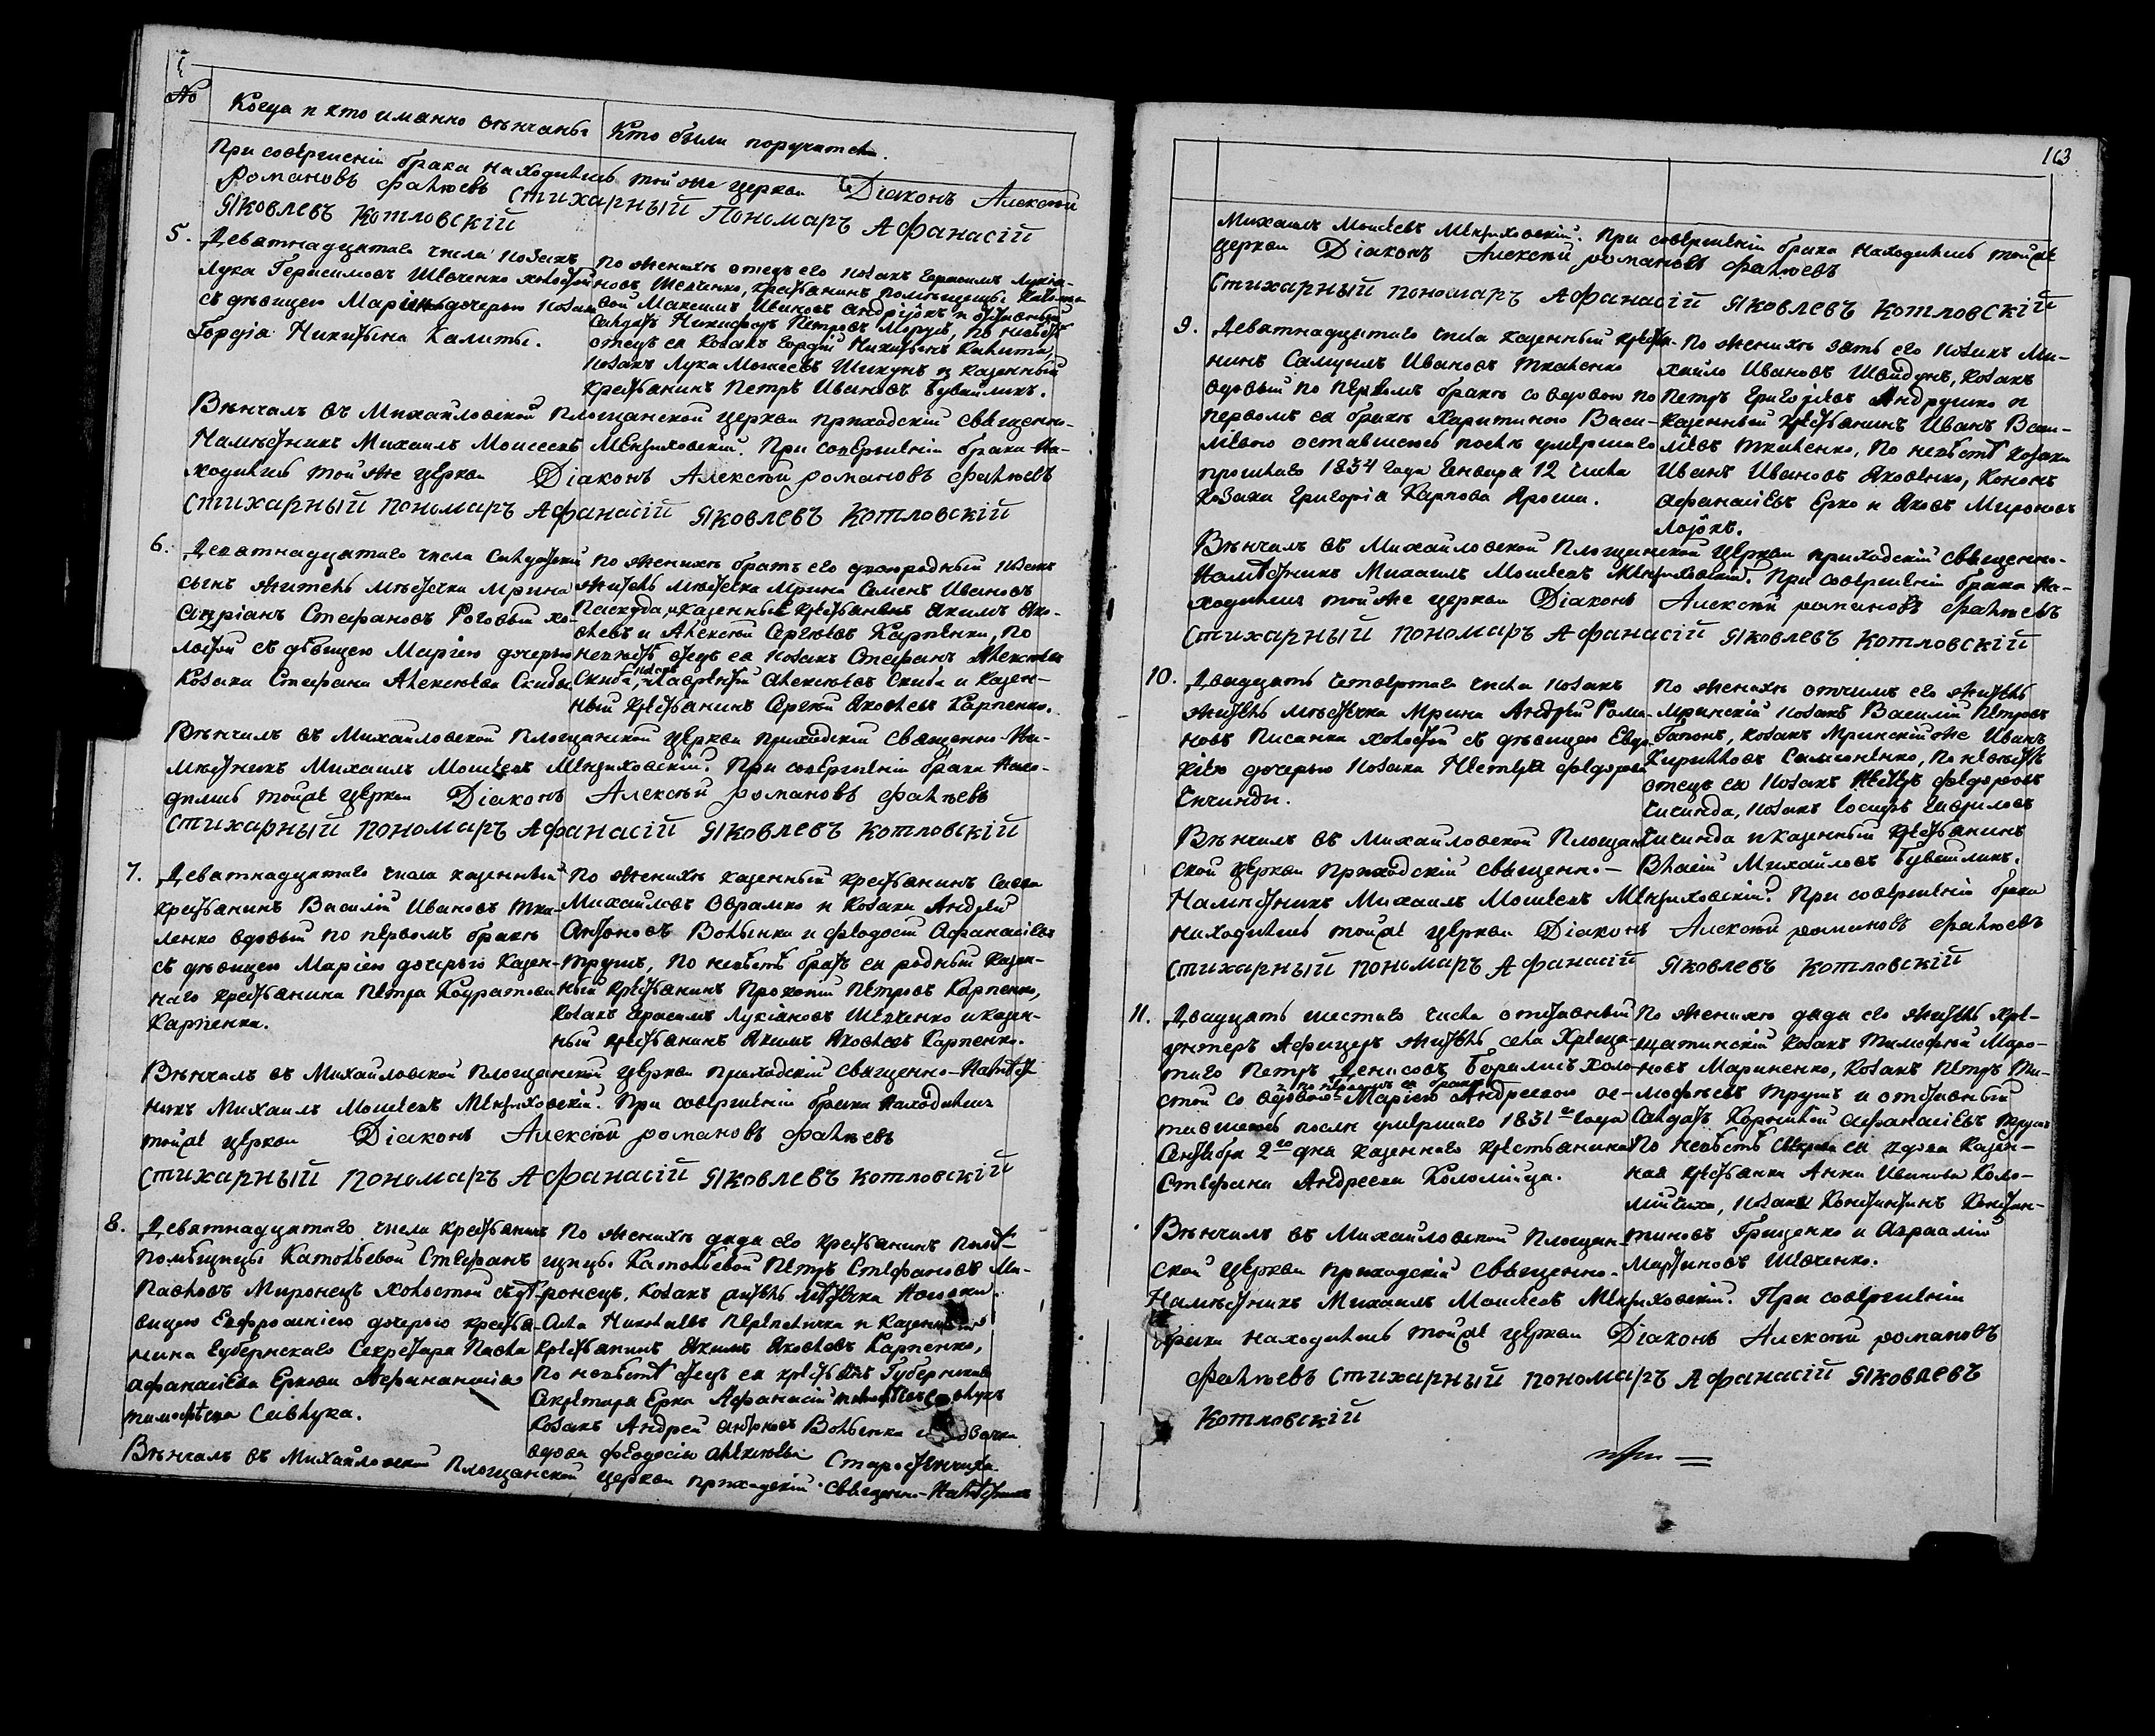 № Когда и кто именно вѣнчаны Кто были поручители.
При совершеніи брака находились той же церкви Діаконъ Алексѣй
Романовъ Фалѣевъ Стихарный Пономаръ Афанасій
Яковлевъ Котловскій
5. Девятнадцатаго числа козакъ
Лука Герасимовъ Шевченко холостой
съ дѣвицею Маріею дочерью козака
Гордія Никитина Калиты.
По женихѣ отецъ его козакъ Герасимъ Лукія-
новъ Шевченко, крестьянинъ помѣщицы
Максимъ Ивановъ Андріюкъ и отставный
Солдатъ Никифоръ Петровъ Моруль, по невѣстѣ
отецъ ея козакъ Гордій Никитинъ Калита,
козакъ Лука Моисеевъ Шикунъ и казенный
крестьянинъ Петръ Ивановъ Бувайликъ.
Вѣнчалъ въ Михайловской Площанской церкви приходскій священно-
Намѣстникъ Михаилъ Моисеевъ При совершеніи брака на-
ходились той же церкви Діаконъ Алексѣй Романовъ Фалѣевъ
Стихарный пономаръ Афанасій Яковлевъ Котловскій
6. Девятнадцатаго числа Солдатскій
сынъ житель мѣстечка Мрина
Стефановъ Роговый хо-
лостой съ дѣвицею Маріею дочерью
козака Стефана Алексѣева Скибы
По женихѣ братъ его двоюродный козакъ
житель мѣстечка Мрина Семенъ Ивановъ
казенные крестьяне Якимъ Яко-
влевъ и Алексѣй Сергѣевъ Карпенки, по
невѣстѣ отецъ ея козакъ Стефанъ Алексѣевъ
Скиба, козакъ Лаврентій Алексѣевъ Скиба и казен-
ный крестьянинъ Сергѣй Яковлевъ Карпенко.
Вѣнчалъ въ Михайловской Площанской церкви приходскій священно-На-
мѣстникъ Михаилъ Моисеевъ При совершеніи брака нахо-
дились тойже церкви Діаконъ Алексѣй Романовъ Фалѣевъ
Стихарный пономаръ Афанасій Яковлевъ Котловскій
7. Девятнадцатаго числа казенный
крестьянинъ Василій Ивановъ Тка-
ленко вдовый по первомъ бракѣ
съ дѣвицею Маріею дочерью казен-
наго крестьянина Петра Кондратова
Карпенка.
По женихѣ казенный крестьянинъ Савва
Михайловъ Аврамко и козаки Андрей
Антоновъ Волынка и Федосій Афанасіевъ
Трушъ, по невѣстѣ братъ ея родный казен-
ный крестьянинъ Прокопій Петровъ Карпенко,
козакъ Герасимъ Лукіановъ Шевченко и казен-
ный крестьянинъ Якимъ Яковлевъ Карпенко.
Вѣнчалъ въ Михайловской Площанской церкви приходскій священно-Намѣст-
никъ Михаилъ Моисеевъ При совершеніи брака находились
тойже церкви Діаконъ Алексѣй Романовъ Фалѣевъ
Стихарный Пономаръ Афанасій Яковлевъ Котловскій
8. Девятнадцатаго числа крестьянинъ
помѣщицы Стефанъ
Павловъ Миронецъ холостой съ дѣ-
вицею Евфросиніею дочерью крестья-
нина Губернскаго Секретаря Павла
Афанасіева Еркова Афанасія
Тимофѣева Савчука.
По женихѣ дядя его крестьянинъ помѣ-
щицы Петръ Стефановъ Ми-
ронецъ, козакъ житель мѣстечка Носовки
Николаевъ Перепечичка и казенный
крестьянинъ Якимъ Яковлевъ Карпенко,
по невѣстѣ отецъ ея крестьянинъ Губернскаго
Секретаря Ерка Афанасій
козакъ Андрей Антоновъ Волынка и
вдова Феодосія Алексѣева
Вѣнчалъ въ Михайловской Площанской церкви приходскій священно-Намѣстникъ
163
Михаилъ Моисеевъ При совершеніи брака находились тойже
церкви Діаконъ Алексѣй Романовъ Фалѣевъ
Стихарный пономаръ Афанасій Яковлевъ Котловскій
9. Девятнадцатаго числа казенный крестья-
нинъ Самуилъ Ивановъ Ткаленко
вдовый по первомъ бракѣ со вдовою по
первомъ ея бракѣ Харитиною Васи-
ліевою оставшеюсь послѣ умершаго
прошлаго 1834 года Генваря 12 числа
козака Григорія Карпова Яроша.
По женихѣ зять его козакъ Ми-
хайло Ивановъ Швидунъ, козакъ
Петръ Григоріевъ Андрушко и
казенный крестьянинъ Иванъ Васи-
ліевъ Ткаленко, по невѣстѣ козаки
Иванъ Ивановъ Яковенко, Кононъ
Афанасіевъ Ерко и Яковъ Мироновъ
Вѣнчалъ въ Михайловской Площанской церкви приходскій священно-
Намѣстникъ Михаилъ Моисеевъ При совершеніи брака на-
ходились той же церкви Діаконъ Алексѣй Романовъ Фалѣевъ
Стихарный пономаръ Афанасій Яковлевъ Котловскій
10. Двадцать четвертаго числа козакъ
житель мѣстечка Мрина Андрей Рома-
новъ Писанка холостой съ дѣвицею Евдо-
кіею дочерью козака Федорова
Чичинды.
По женихѣ отчимъ его житель
Мринскій козакъ Василій Петровъ
Гапонъ, козакъ Мринскій же Иванъ
Кириловъ Самсоненко, по невѣстѣ
отецъ ея козакъ Федоровъ
Чичинда, козакъ Іосифъ Гавриловъ
Чичинда и казенный крестьянинъ
Власій Михайловъ Бувайликъ.
Вѣнчалъ въ Михайловской Площан-
ской церкви приходскій священно-
Намѣстникъ Михаилъ Моисеевъ При совершеніи брака
находились тойже церкви Діаконъ Алексѣй Романовъ Фалѣевъ
Стихарный пономаръ Афанасій Яковлевъ Котловскій
11. Двадцать шестаго числа отставный
унтеръ Афицеръ житель села Хреща-
таго Петръ Денисовъ холо-
стой со вдовою по первомъ ея бракѣ Маріею Андреевою ос-
тавшеюсь послѣ умершаго 1831го года
Октября 2го дня казеннаго крестьянина
Стефана Андреева Коломійца.
По женихѣ дядя его житель Хре-
щатинскій козакъ Тимофей Марко-
новъ Мариненко, козакъ Петръ Ти-
мофѣевъ Трушъ и отставный
Солдатъ Корнилій Афанасіевъ Трушъ
по невѣстѣ свекровь ея вдова казен-
ная крестьянка Анна Иванова Коло-
мійчиха, козаки Константинъ Констан-
тиновъ Грищенко и Авраамій
Мартиновъ Шевченко.
Вѣнчалъ въ Михайловской Площан-
ской церкви приходскій священно-
Намѣстникъ Михаилъ Моисеевъ При совершеніи
брака находились тойже церкви Діаконъ Алексѣй Романовъ
Фалѣевъ Стихарный пономаръ Афанасій Яковлевъ
Котловскій